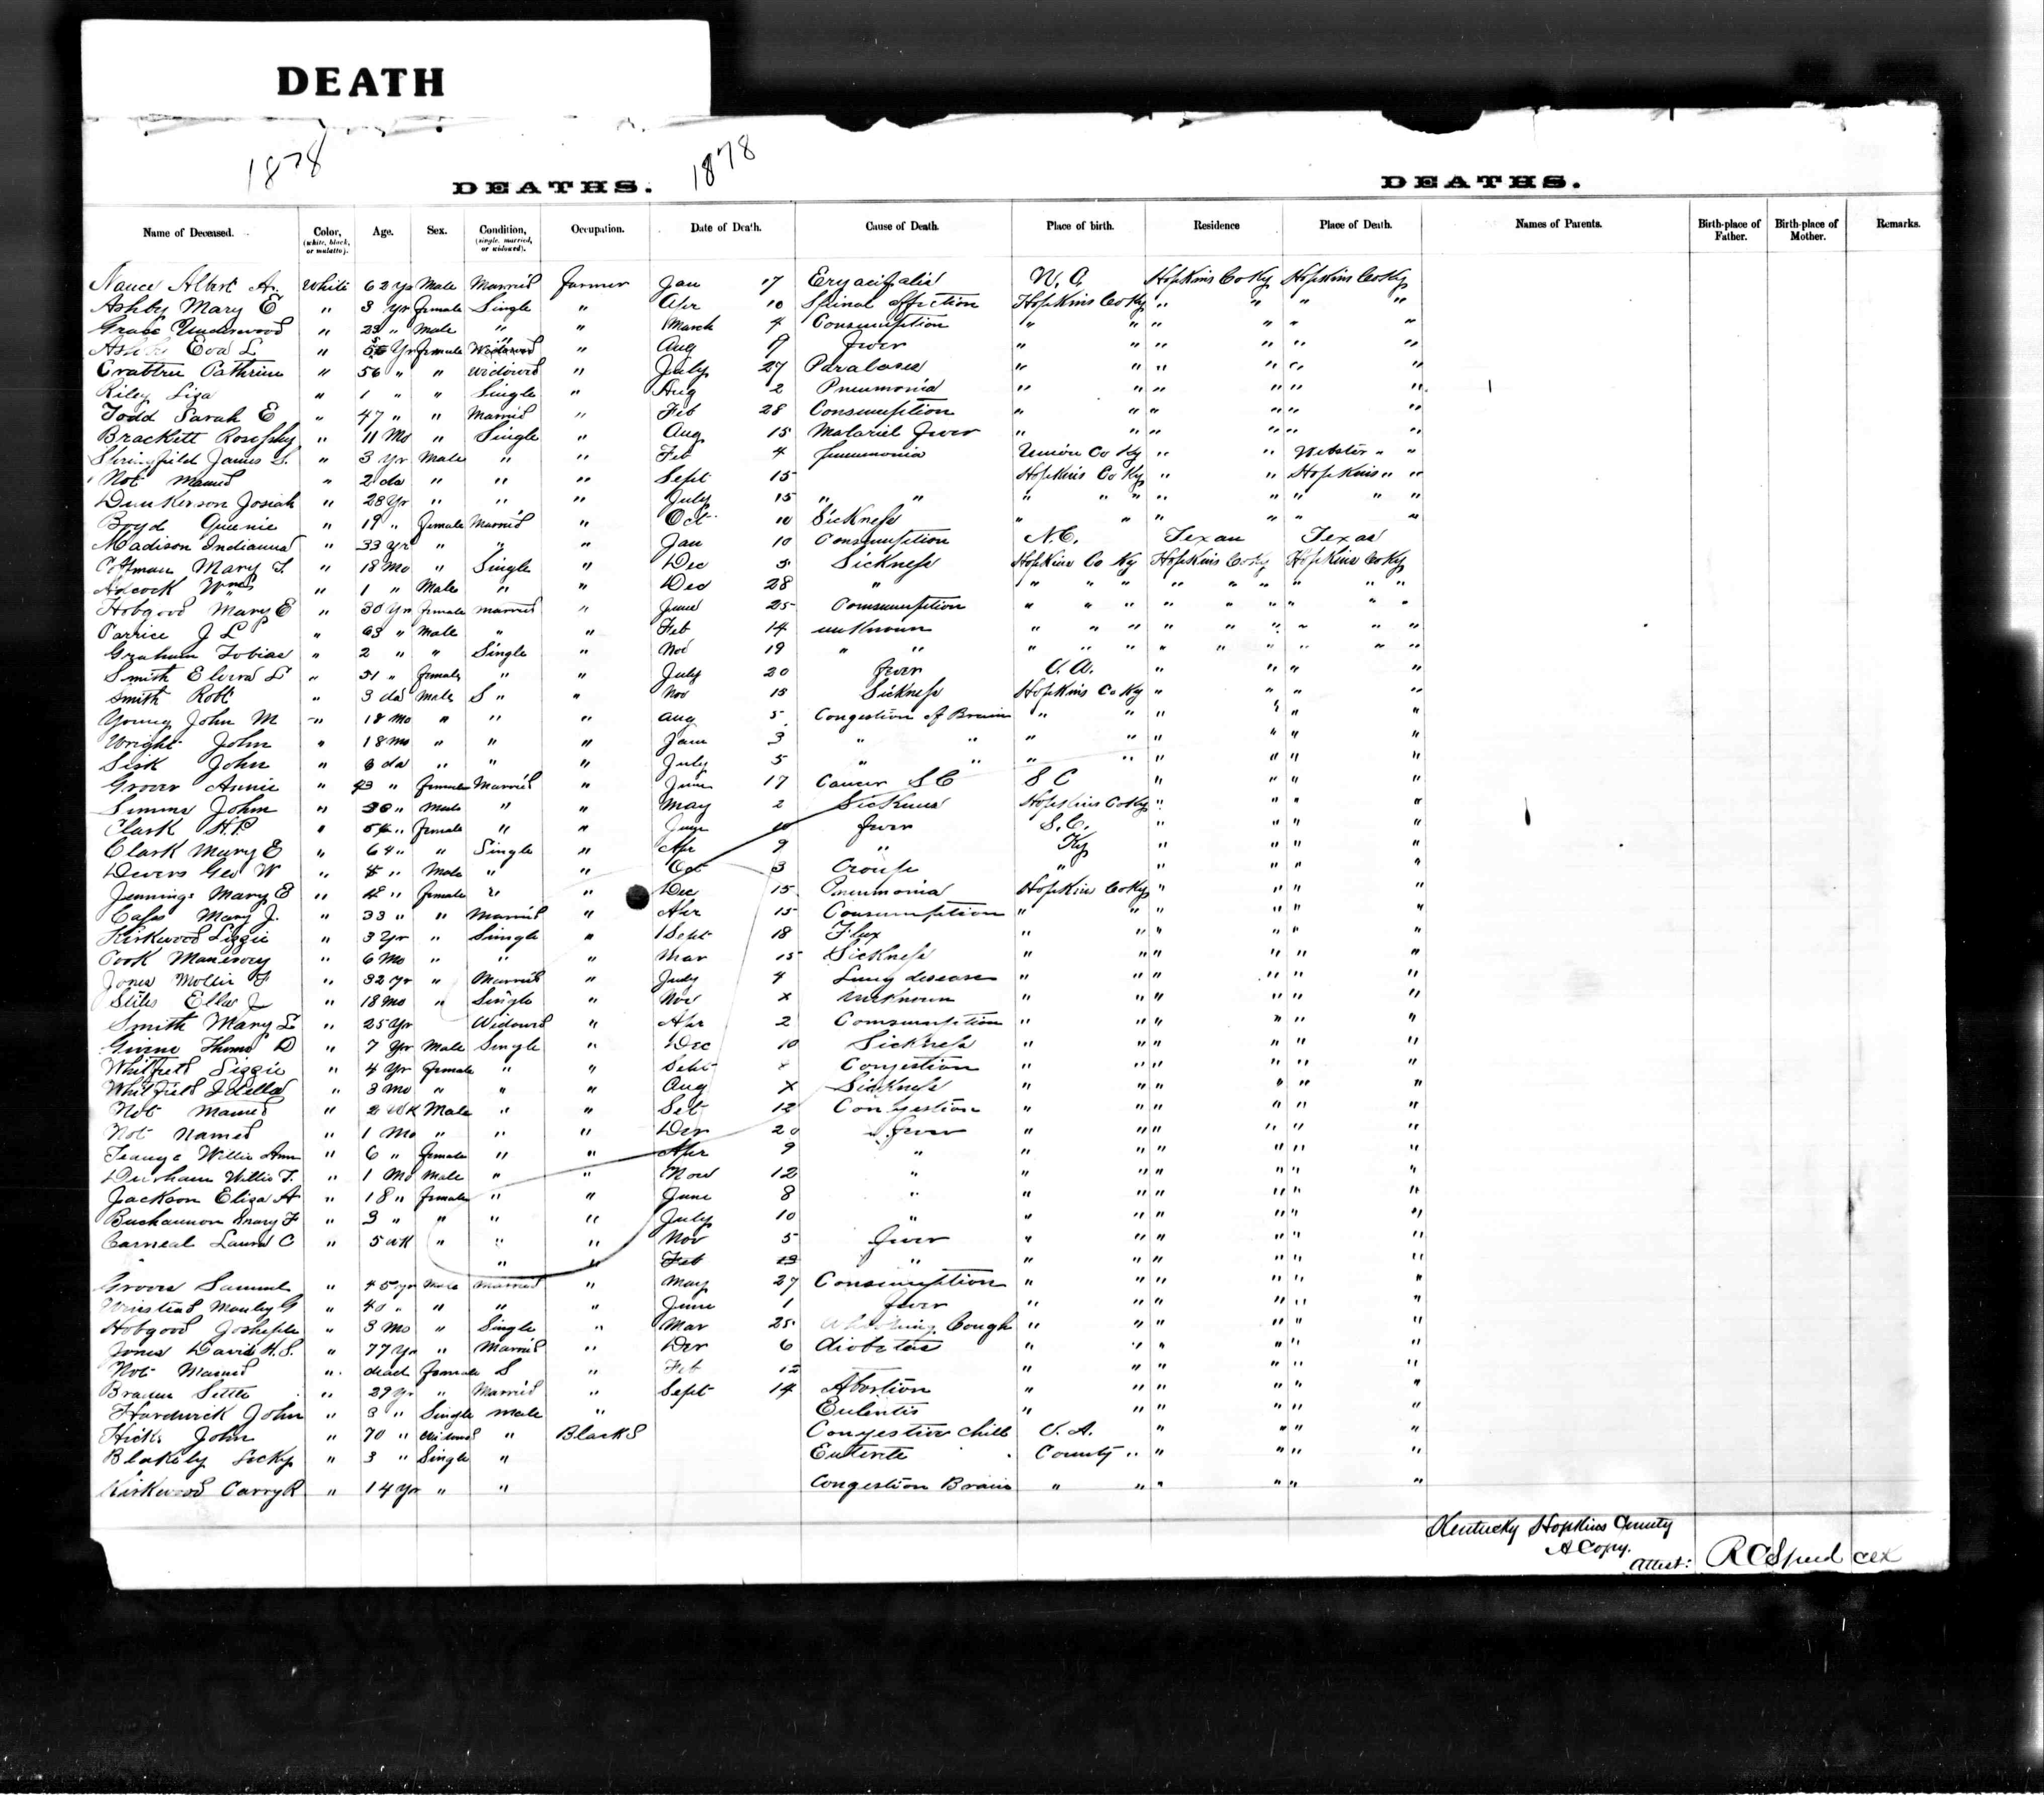 DEATH
1878
1878
DEATHS. DEATHS.
Name of Deceased. Color, (white, black, or mulatto). Age. Sex. Condition, (single, married, or widowed). Occupation. Date of Death. Cause of Death. Place of birth. Residence Place of Death. Names of Parents. Birth-place of Father. Birth-place of Mother. Remarks.
Nance Albert White 62 yr Male Married farmer Jan 17 Hopkins Co Ky Hopkins Co Ky
Ashby Mary E " 3 yr female Single " Apr 10 Spinal Hopkins Co Ky " " " "
Underwood " 23 " Male " " March 4 Consumption " " " " " "
Eva L " Yr female Widowed " Aug 9 fever " " " " " "
Crabtree Cathrine " 56 " " Widowed " July 27 " " " " " "
Riley Liza " 1 " " Single " Aug 2 Pneumonia " " " " " "
Todd Sarah E " 47 " " Married " Feb 28 Consumption " " " " " "
Brackett " 11 Mo " Single " Aug 15 Malariel fever " " " " " "
Springfield James S. " 3 Yr Male " " Feb 4 pneumonia Union Co Ky " " Webster " "
Not Named " 2 da " " " Sept 15 Hopkins Co Ky " " Hopkins " "
Dunkerson Josiah " 28 Yr " " " July 15 " " " " " " " " " "
Boyd Queenie " 19 " female Married " Oct 10 Sickness " " " " " "
Madison Indianna " 33 yr " " " Jan 10 Consumption N.C. Texas Texas
Coffman Mary " 18 Mo " Single " Dec 5 Sickness Hopkins Co Ky Hopkins Co Ky Hopkins Co Ky
Adcock Wm " 1 " Male " " Dec 28 " " " " " " " " " "
Hobgood Mary E " 30 Yr female married " June 25 Comsumption " " " " " " " " "
J L " 63 " Male " " Feb 14 unknown " " " " " " " " "
Graham Tobias " 2 " " Single " Nov 19 " " " " " " " " " " "
Smith Elvira " 31 " female " " July 20 fever V.A. " " " "
Smith Robt " 3 da Male S " " Nov 15 Sickness Hopkins Co Ky " " " "
Young John M " 18 Mo " " " Aug 5 Congestion of Brain " " " " " "
Wright John " 18 mo " " " Jan 3 " " " " " " " "
Sisk John " da " " " July 5 " " " " " " " "
Grover Annie " " female Married " June 17 Cancer S C S C " " " "
Simms John " 30 " Male " " May 2 Sickness Hopkins Co Ky " " " "
Clark H.P. " " female " " 10 fever S.C. " " " "
Clark Mary E " 64 " " Single " Apr 9 " Ky " " " "
Geo W " " Male " " Oct 3 Croupe " " " " "
Jennings Mary E " " female " " Dec 15 Pneumonia Hopkins Co Ky " " " "
Mary J. " 33 " " Married " Apr 15 Consumption " " " " " "
Kirkwood Lizzie " 3 Yr " Single " Sept 18 Flux " " " " " "
Cook " 6 Mo " " " Mar 15 Sickness " " " " " "
Jones Mollie F " 32 yr " Married " July 4 Lung disease " " " " " "
Stiles Ella J " 18 mo " Single " Nov x unknown " " " " " "
Smith Mary L " 25 Yr Widowed " Apr 2 Comsumption " " " " " "
D " 7 Yr Male Single " Dec 10 Sickness " " " " " "
Whitfield Lizzie " 4 Yr female " " Sept x Congestion " " " " " "
Whitfield " 3 mo " " " Aug x Sickness " " " " " "
Not Named " 2 wk Male " " 12 Congestion " " " " " "
Not Named " 1 Mo " " " 20 " fever " " " " " "
Willie Ann " 6 " female " " Apr 9 " " " " " " "
Durham Willis T. " 1 Mo Male " " Nov 12 " " " " " " "
Jackson Eliza A " 18 " female " " June 8 " " " " " " "
Buchannon F " 3 " " " " July 10 " " " " " " "
Carneal Laura C " 5 wk " " " Nov 5 fever " " " " " "
" " Feb " " " " " " "
Groves Samuel " 45 yr Male Married " May 27 Consumption " " " " " "
Winstead Manley G " 40 " " " " June 1 fever " " " " " "
Hobgood " 3 Mo " Single " Mar 25 Cough " " " " " "
Jones David H.S. " 77 Yr " Married " 6 diabetes " " " " " "
Not Named " dead female S " Feb 12 " " " " " "
Settle " 29 yr " Married " Sept 14 Abortion " " " " " "
Hardwick John " 3 " Single male " " " " " " "
Hicks John " 70 " " Blacks Congestive chill V.A. " " " "
Blakely " 3 " Single " County " " " " "
Kirkwood Carry R " 14 Yr " " Congestion Brain " " " " " "
Kentucky Hopkins County
A Copy.
Attest: R C Speed